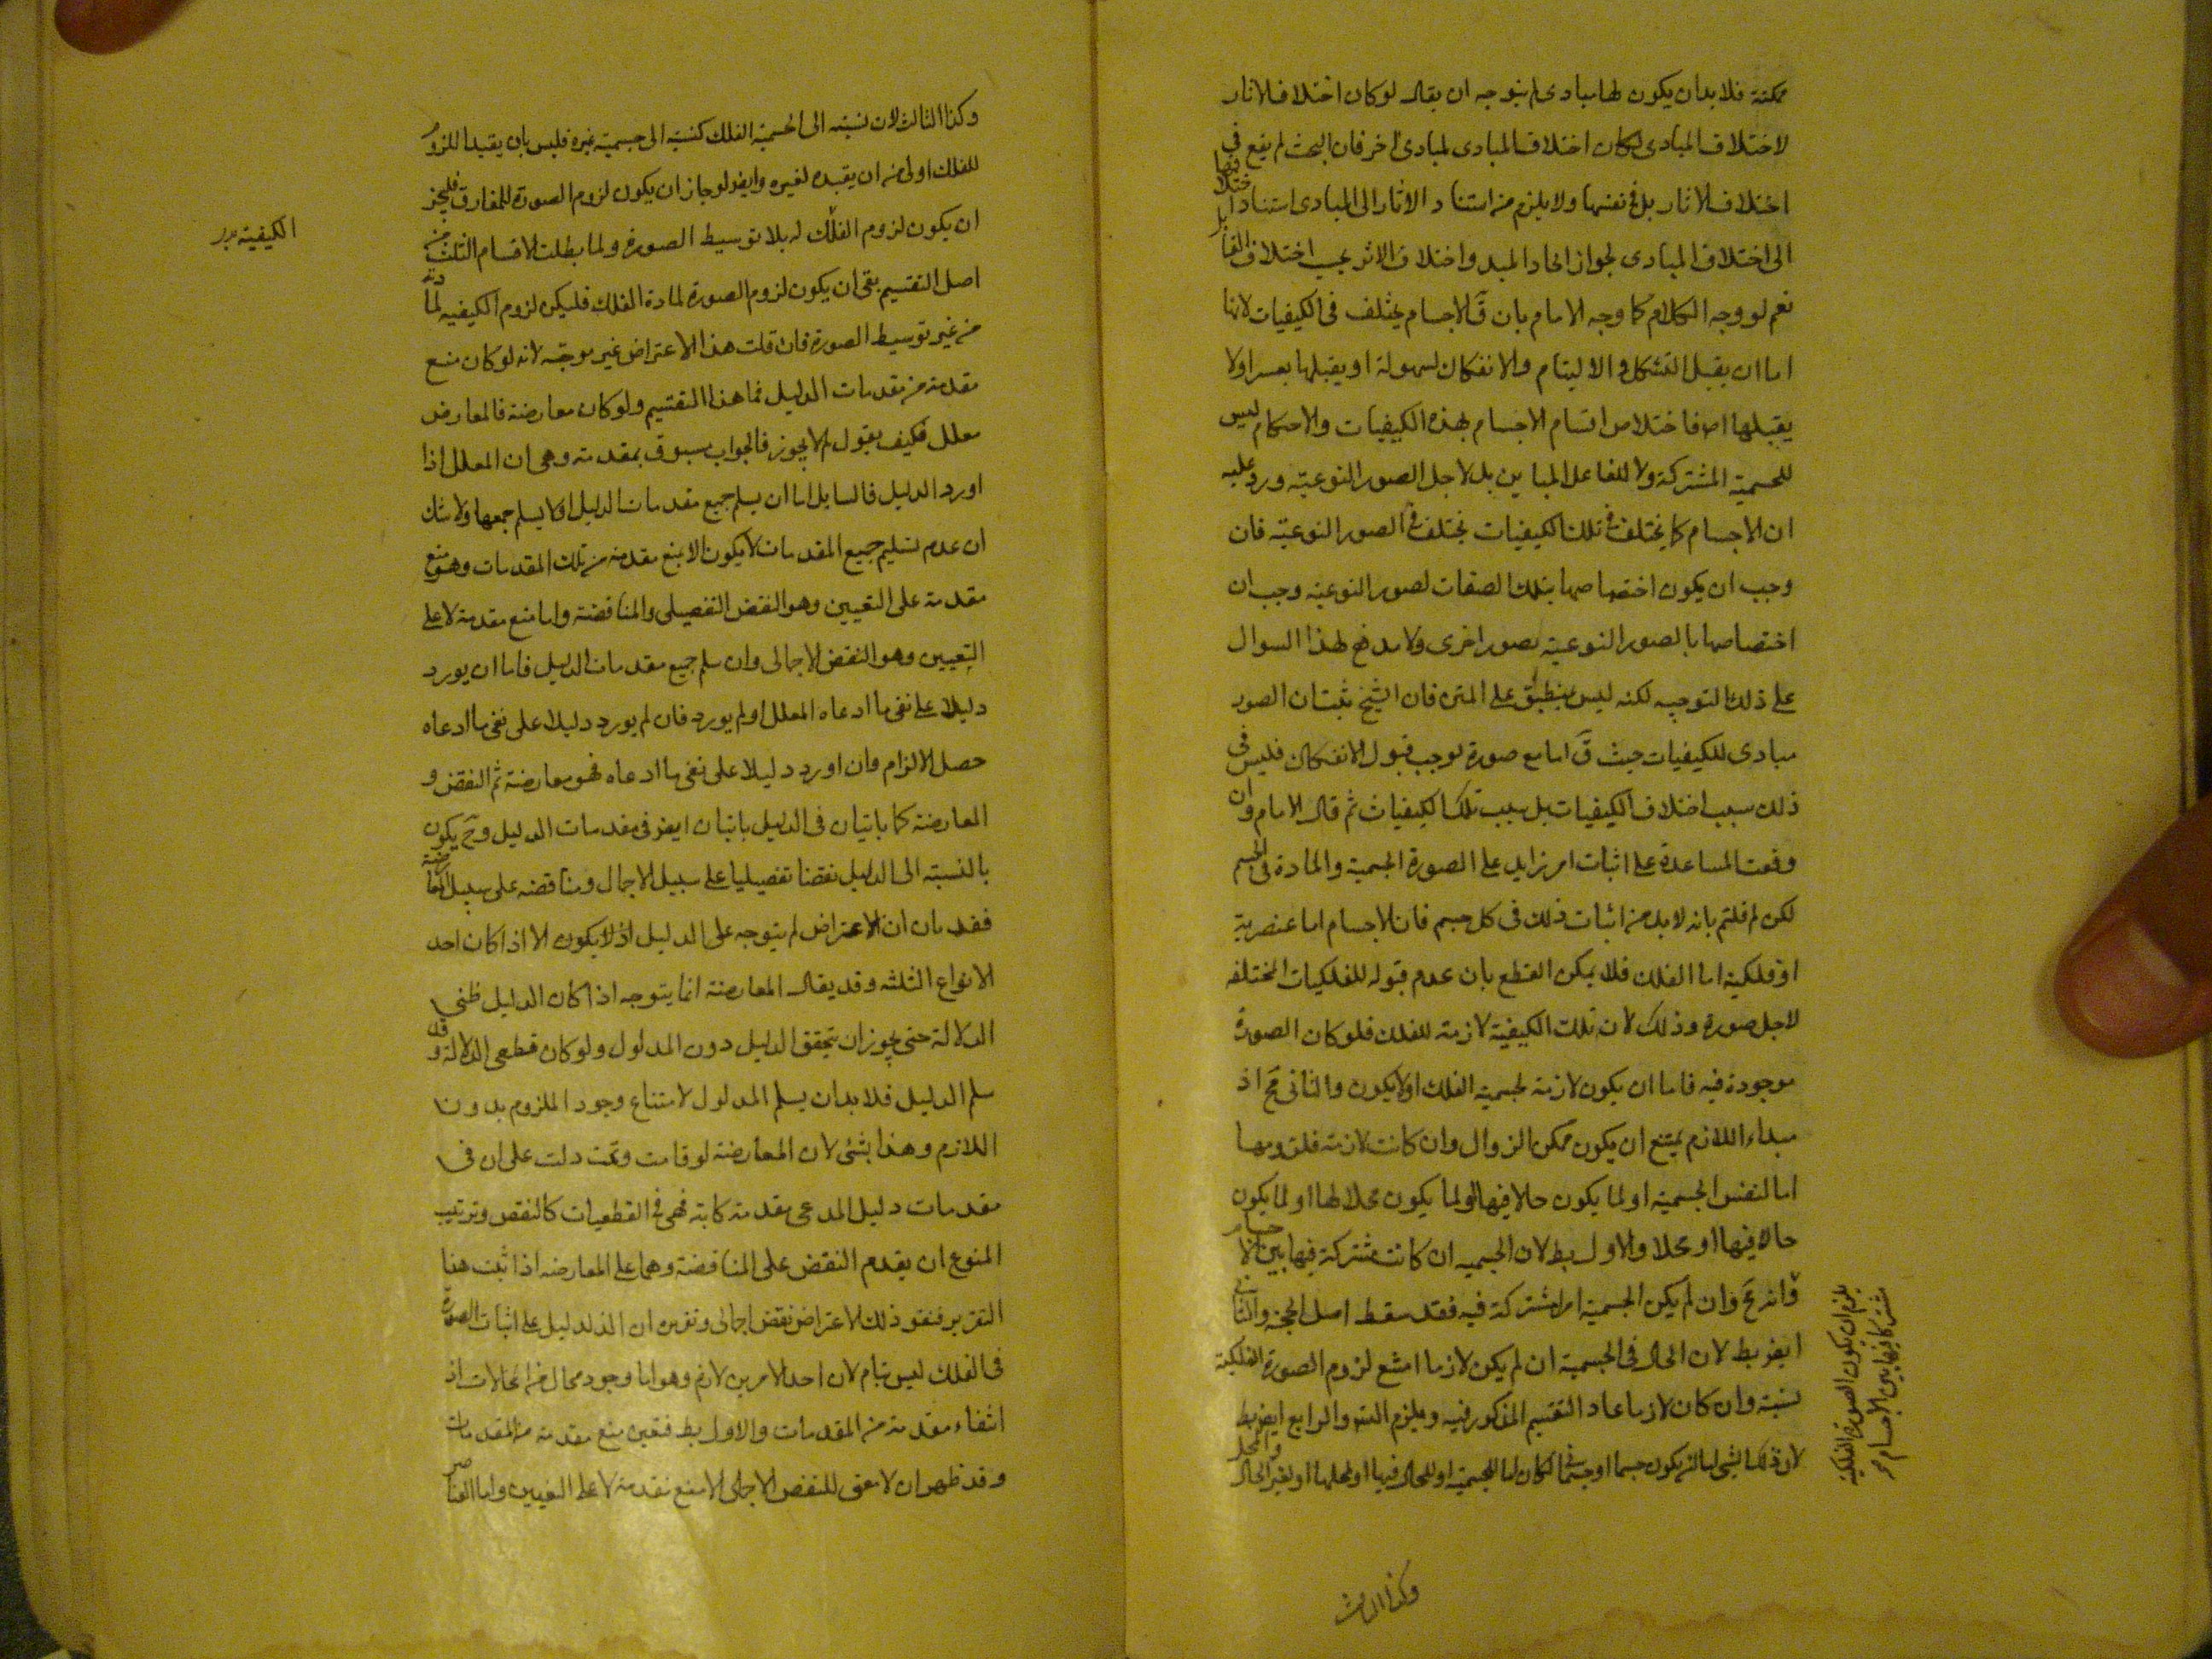 ممكنة فلا بد ان يكون لها مبادى لم يتوجه ان يقال لو كان اختلاف الاثار
لاختلاف المبادى لكان اختلاف المبادى لمبادى اخر فان البحث لم يقع فى
اختلاف الاثار بل فى نفسها ولا يلزم من استناد الاثار الى المبادى استناد اختلافها
الى اختلاف المبادى لجواز اتحاد المبدء واختلاف الاثر بحسب اختلاف القابل
نعم لو وجه الكلام كما وجه الامام بان قَ الاجسام يختلف فى الكيفيات لانها
اما ان يقبل التشكل والالتيام والانفكاك لسهولة او يقبلها بعسر او لا
يقبلها اصر فاختلاص اقسام الاجسام بهذه الكيفيات والاحكام ليس
للجسمية المشتركة ولا للفاعل المباين بل لاجل الصور النوعية ورد عليه
ان الاجسام كما يختلف فى تلك الكيفيات يختلف فى الصور النوعية فان
وجب ان يكون اختصاصها بتلك الصفات لصور النوعية وجب ان
اختصاصها بالصور النوعية لصور اخرى ولا مدفع لهذا السوال
على ذلك التوجيه لكنه ليس ينطبق على المتن فان الشيخ يثبت ان الصور
مبادى للكيفيات حيث قَ اما مع صورة توجب قبول الانفكاك فليس فى
ذلك سبب اختلاف الكيفيات بل سبب تلك الكيفيات ثم قال الامام وان
وقعت المساعدة على اثبات امر زايد على الصورة الجسمية والمادة فى الجسم
لكن لم قلتم بانه لا بد من اثبات ذلك فى كل جسم فان الاجسام اما عنصرية
او فلكية اما الفلك فلا يمكن القطع بان عدم قبوله للفلكيات المختلفه
لاجل صورة وذلك لان تلك الكيفية لازمة للفلك فلو كان الصورة
موجودة فيه فاما ان يكون لازمة لجسمية الفلك او لا يكون والثانى مح اذ
مبداء اللازم يمتنع ان يكون ممكن الزوال وان كانت لازمة فلزومها
اما لنفس الجسمية او لما يكون حالا فيها او لما يكون محلا لها او لما يكون
حالا فيها او محلا والاول بط لان الجسميه ان كانت مشتركة فيها بين الاجسام
يلزم ان يكون الصورة الفلكية
مشتركا فيها بين الاجسام
وانه مح وان لم يكن الجسمية امرا مشتركة فيه فقد سقط اصل الحجة والثانى
ايضر بط لان الحال فى الجسمية ان لم يكن لازما امتنع لزوم الصورة الفلكية
لسببه وان كان لازما عاد التقسيم المذكور فيه ويلزم التسر والرابع ايضر بط
لان ذلك الشى لما لم يكون جسما او جسمانيا لكان اما للجسمية او للحال فيها او لمحلها او لغير الحال والمحل
وكذا الثالث
وكذا الثالث لان نسبته الى الجسمية الفلك كنسبته الى جسمية غيره فليس بان يقيد اللزوم
للفلك اولى من ان يقيده لغيره وايضر لو جاز ان يكون لزوم الصورة للمفارق فليجز
ان يكون لزوم الفلك له بلا توسيط الصورة ولما بطلت الاقسام الثلث من
الكيفية
اصل التقسيم بقى ان يكون لزوم الصورة لمادة الفلك فليكن لزوم الكيفيه لمادته
من غير توسيط الصورة فان قلت هذا الاعتراض غير موجّه لانه لو كان منع
مقدمة من مقدمات الدليل فما هذا التقسيم ولو كان معارضة فالمعارض
معلل فكيف يقول لم لا يجوز فالجواب مسبوق بمقدمة وهى ان المعلل اذا
اورد الدليل فالسايل اما ان يسلم جميع مقدمات الدليل او لا يسلم جمعها ولا شك
ان عدم تسليم جميع المقدمات لا يكون الا بمنع مقدمة من تلك المقدمات وهو منع
مقدمة على التعيين وهو النقض التفصيلى والمناقضة واما منع مقدمة لا على
التعيين وهو النقض الاجمالى وان سلم جميع مقدمات الدليل فاما ان يورد
دليلا على نفى ما ادعاه المعلل او لم يورد فان لم يورد دليلا على نفى ما ادعاه
حصل الالزام وان اورد دليلا على نفى ما ادعاه فهو معارضة ثم النقض و
المعارضة كما ياتيان فى الدليل ياتيان ايضر فى مقدمات الدليل وح يكون
بالنسبة الى الدليل نقضا تفصيليا على سبيل الاجمال ومناقضه على سبيل المعارضة
فقد بان ان الاعتراض لم يتوجه على الدليل اذ لا يكون الا اذا كان احد
الانواع الثلثه وقد يقال المعارضة انما يتوجه اذا كان الدليل ظنى
الدلالة حتى يجوز ان يتحقق الدليل دون المدلول ولو كان قطعى الدلالة وقد
سلم الدليل فلا بد ان يسلم المدلول لامتناع وجود الملزوم بدون
اللازم وهذا بشئ لان المعارضة لو قامت وتمت دلت على ان فى
مقدمات دليل المدعى مقدمة كاذبة فهى فى القطعيات كالنقض وترتيب
المنوع ان يقدم النقض على المناقضة وهما على المعارضه اذا ثبت هذا
التقرير فنقو ذلك الاعتراض نقض اجمالى وتقريره ان الدليل على اثبات الصورة
فى الفلك ليس بتام لان احد الامرين لازم وهو اما وجود محال من المحالات او
انتفاء مقدمة من المقدمات والاول بط فتعين منع مقدمة من المقدمات
وقد ظهر ان لا معنى للنقض الاجمالى الا منع مقدمة لا على التعيين واما العناصر